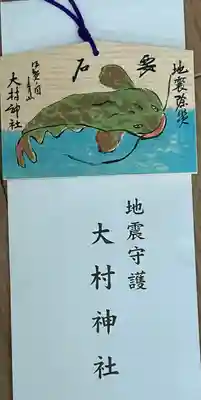 地震除災
要石
伊賀ノ国
大村神社
地震守護
大村神社